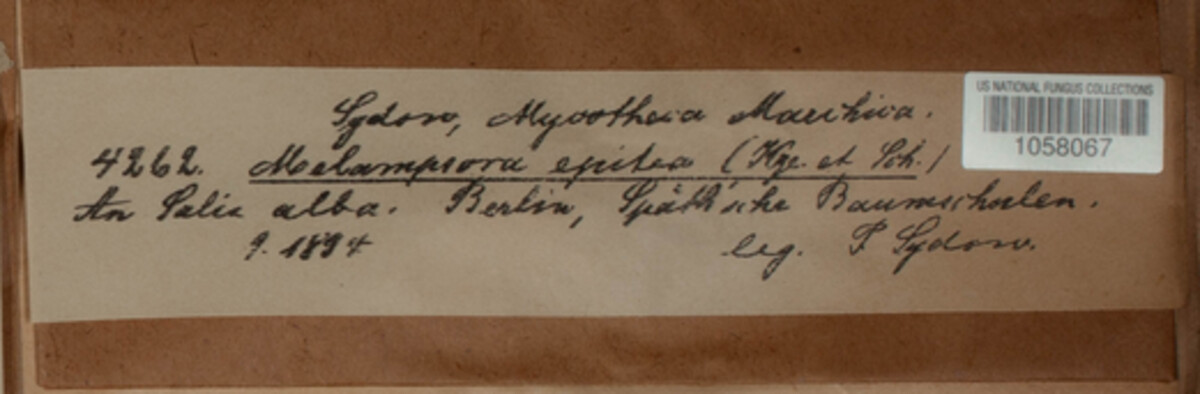 Sydow, Mycotheca Marchica.
US NATIONAL FUNGUS COLLECTIONS
1058067
4262. Melampsora epitea (Kze. et Sch.)
An Salix alba. Berlin, Späth'sche Baumschulen.
9. 1894 leg. P. Sydow.